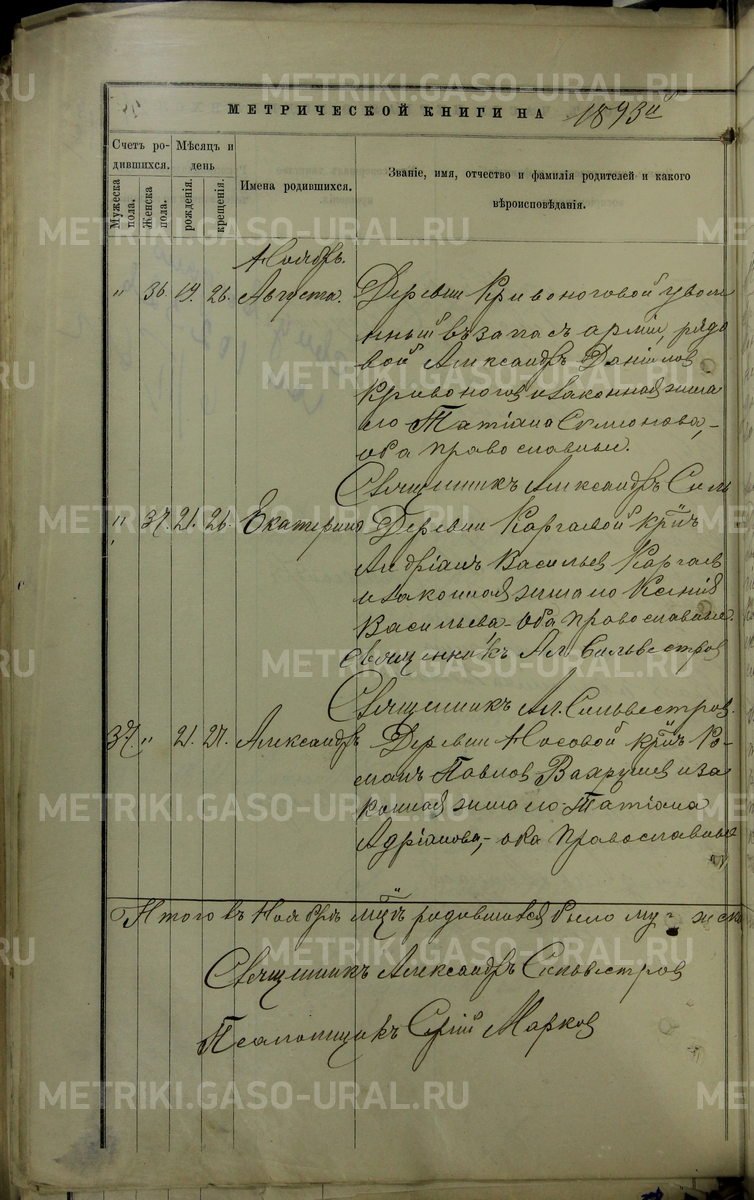 МЕТРИЧЕСКОЙ КНИГИ НА 1893й
Счетъ ро-
дившихся.
Мѣсяцъ и
день
Мужеска пола.
Женска пола.
рожденія.
крещенія.
Имена родившихся.
Званіе, имя, отчество и фамилія родителей и какого
вѣроисповѣданія.
Ноябрь.
" 36. 19. 26. Августа. Деревни Кривоноговой уволе
нный въ запасъ арміи, рядо
вой Александръ Даніилов
Кривоногов и законная жена
его Татіана Симеонова,-
оба православные.
Священникъ Александръ Силь
" 37. 21. 26. Екатерина Деревни Каргаевой крест.
Андріанъ Васильев Каргаев
и законная жена его Ксенія
Васильева - оба православные.
Священникъ Ал. Сильвестров
Священникъ Ал. Сильвестров.
37. " 21. 27. Александръ Деревни Носовой крест. Ро-
манъ Павлов Вахрушев и за
конная жена его Татіана
Адріанова,- оба православные
Итого въ Ноябрѣ родившихся было муж женс
Священникъ Александръ Сильвестров
Псаломщикъ Сергій Марков
METRIKI.GASO-URAL.RU